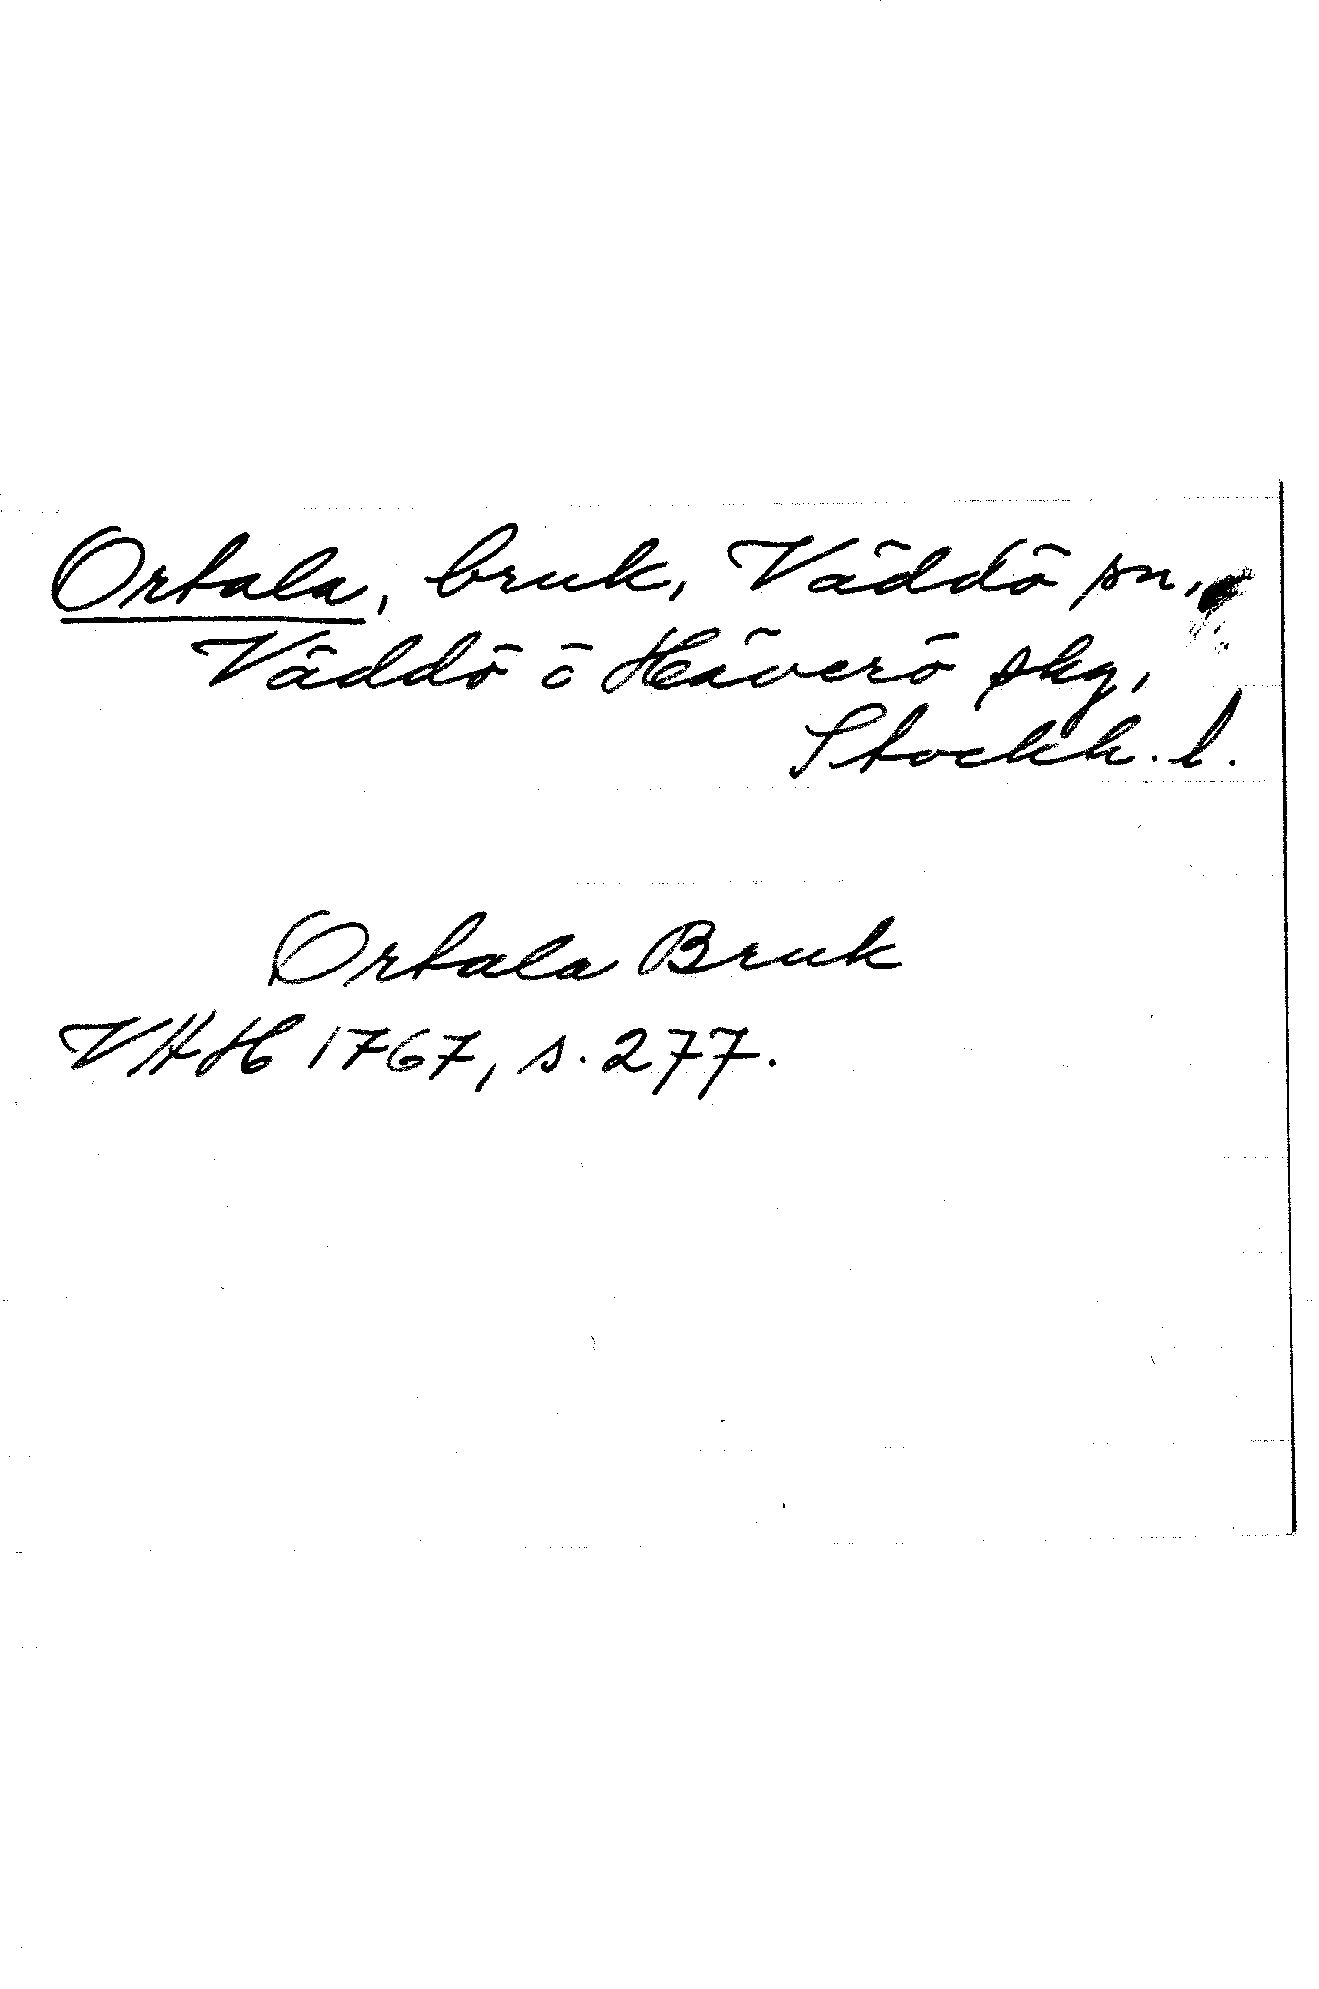 Ortala, bruk, Väddö sn,
Väddö o Häverö skg,
Stockh. l.
Ortala Bruk
VHH 1767, s. 277.